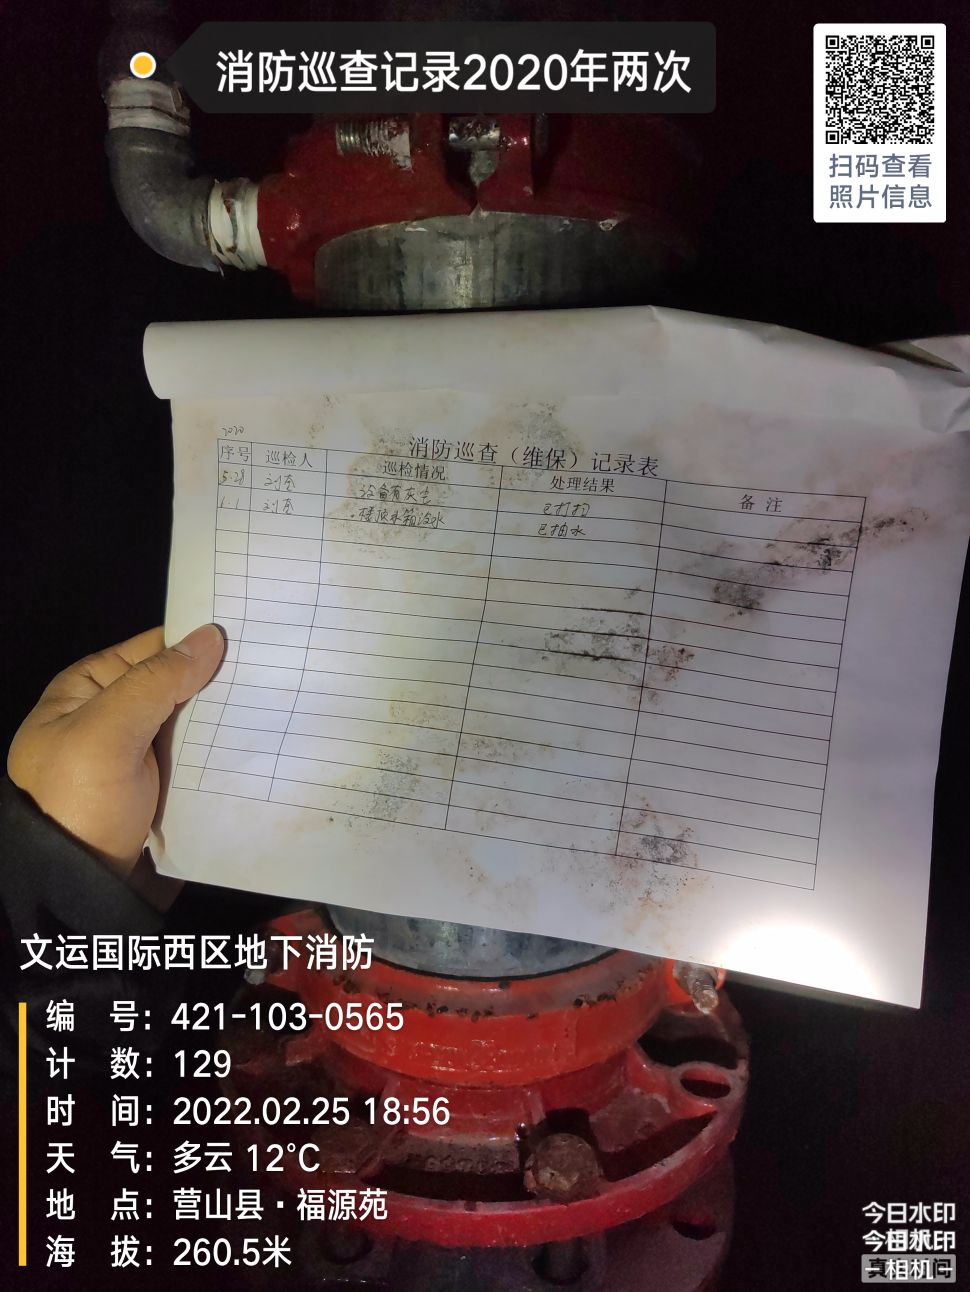 消防巡查记录2020年两次
扫码查看
照片信息
2020
消防巡查（维保）记录表
序号 巡检人 巡检情况 处理结果 备注
5.28 设备有灰尘 已打扫
6.1 楼顶水箱没水 已抽水
文运国际西区地下消防
编 号：421-103-0565
计 数：129
时 间：2022.02.25 18:56
天 气：多云 12℃
地 点：营山县·福源苑
海 拔：260.5米
今日水印
今日水印
-相机-